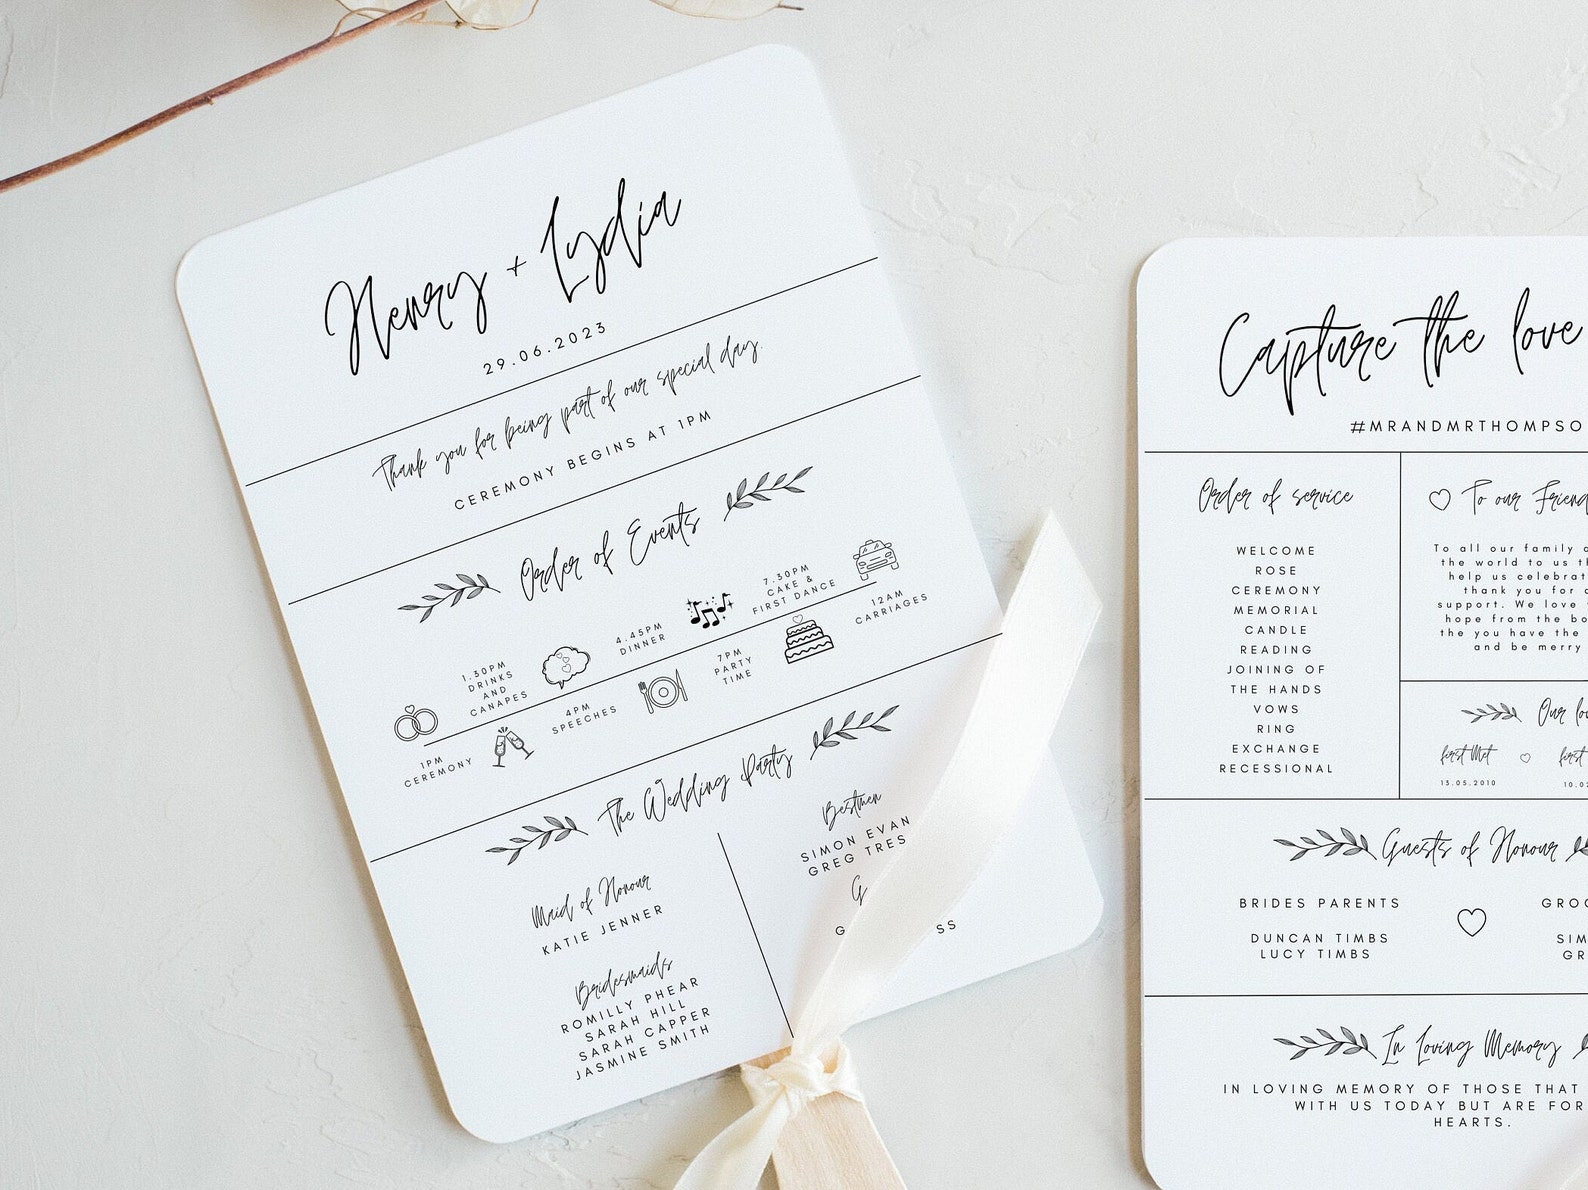 Henry + Lydia
29.06.2023
Thank you for being part of our special day.
CEREMONY BEGINS AT 1PM
Order of Events
1PM
CEREMONY
1.30PM
DRINKS
AND
CANAPES
4PM
SPEECHES
4.45PM
DINNER
7PM
PARTY
TIME
7.30PM
CAKE &
FIRST DANCE
12AM
CARRIAGES
The Wedding Party
Maid of Honour
KATIE JENNER
Bridesmaids
ROMILLY PHEAR
SARAH HILL
SARAH CAPPER
JASMINE SMITH
Bestmen
SIMON EVAN
GREG TRES
Capture the love
#MRANDMRTHOMPSO
Order of service
WELCOME
ROSE
CEREMONY
MEMORIAL
CANDLE
READING
JOINING OF
THE HANDS
VOWS
RING
EXCHANGE
RECESSIONAL
To our Friend
To all our family
the world to us
help us celebrat
thank you for
support. We love
hope from the bo
the you have the
and be merry
Our
first Met
13.05.2010
first
10.02
Guests of Honour
BRIDES PARENTS
DUNCAN TIMBS
LUCY TIMBS
In Loving Memory
IN LOVING MEMORY OF THOSE THAT
WITH US TODAY BUT ARE FOR
HEARTS.